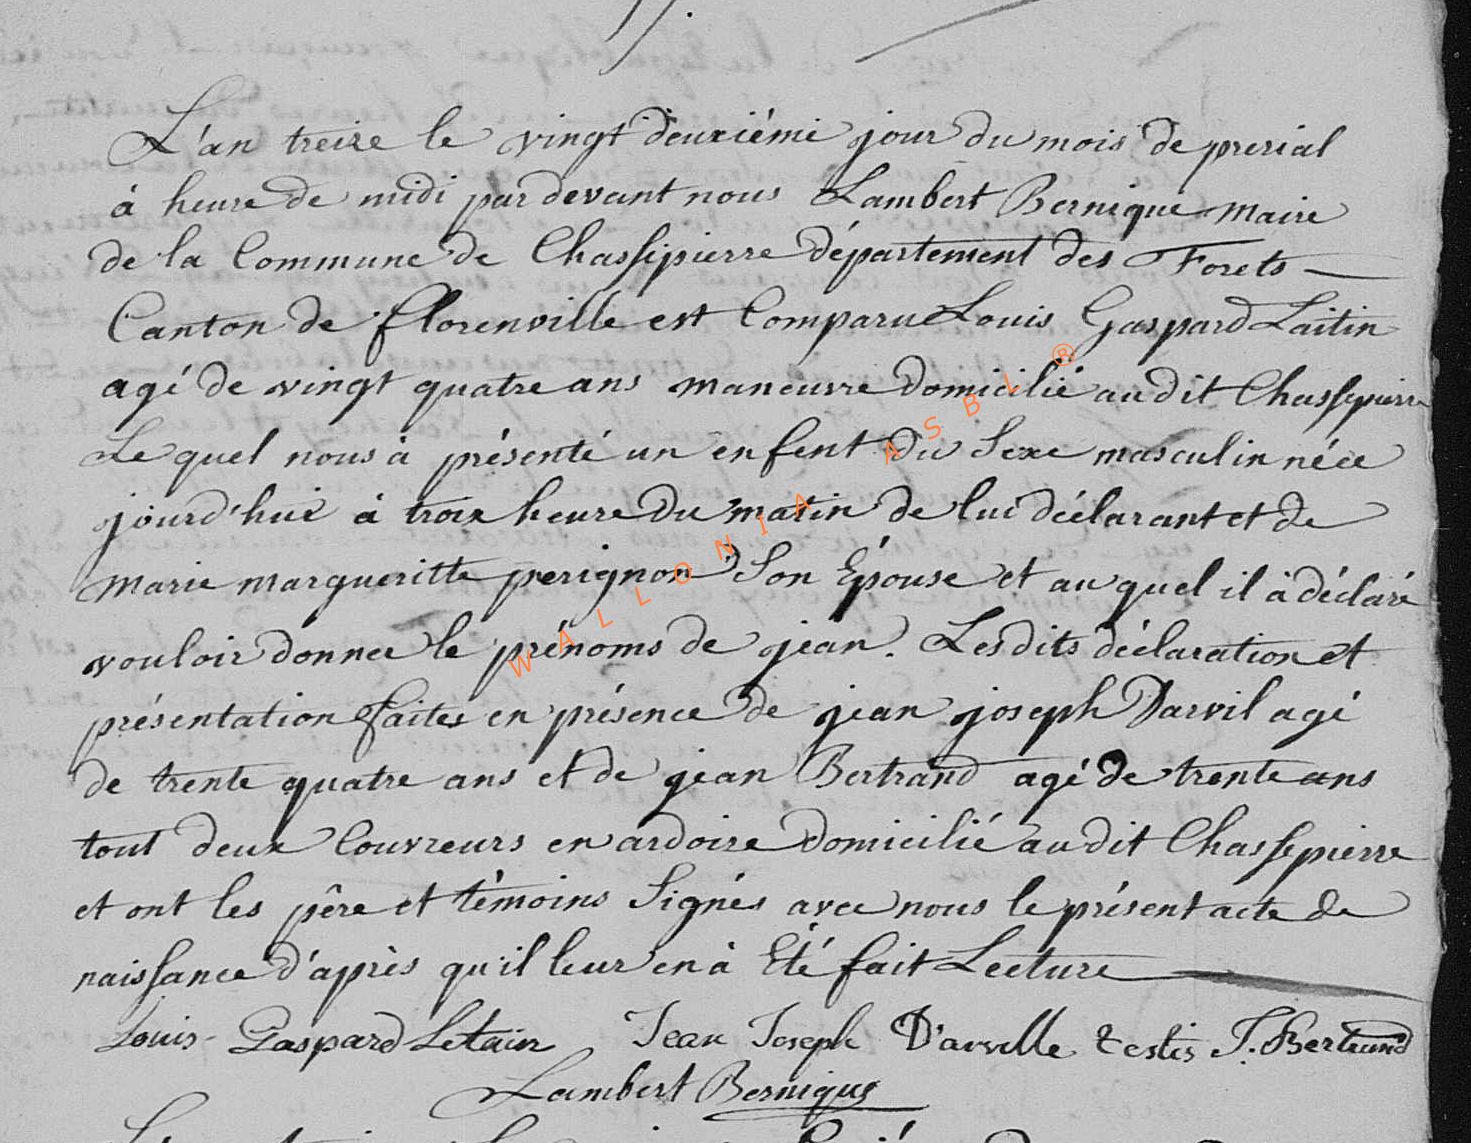 L'an treize le vingt deuxiéme jour du mois de prerial
à heure de midi par devant nous Lambert Bernique maire
de la Commune de Chassepierre département des Forets
Canton de Florenville est Comparu Louis Gaspard Laitin
agé de vingt quatre ans maneuvre domicilié au dit Chassepierre
Le quel nous à présenté un enfent du Sexe masculin née ce
jourd'hui à trois heure du matin de lui déclarant et de
marie margueritte perignon Son Épouse et au quel il à déclaré
vouloir donner le prénoms de jean. Les dits déclaration et
présentation faites en présence de jean joseph Darvil agé
de trente quatre ans et de jean Bertrand agé de trente ans
tout deux Couvreurs en ardoire domicilié au dit Chassepierre
et ont les père et témoins Signés avec nous le présent acte de
naissance d'après qu'il leur en à Été fait Lecture
Louis Gaspard Letain Jean Joseph D'arville testis J. Bertrand
Lambert Bernique
WALLONIA ASBL ®